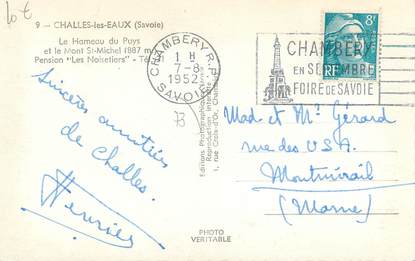 Lot
9 - CHALLES-les-EAUX (Savoie)
Le Hameau du Puys
et le Mont St-Michel (887 m
Pension "Les Noisetiers" - Té
CHAMBERY R.P.
1 H
7-8
1952
SAVOIE
CHAMBERY
EN SEPTEMBRE
FOIRE DE SAVOIE
8F
RF
Sincères amitiés
de Challes.
Editions Photographiques
Reproduction interdite
1, rue Croix-d'Or, Chambéry
Mad et Mr Gérard
rue des U.S.A.
Montmirail
(Marne)
PHOTO
VERITABLE